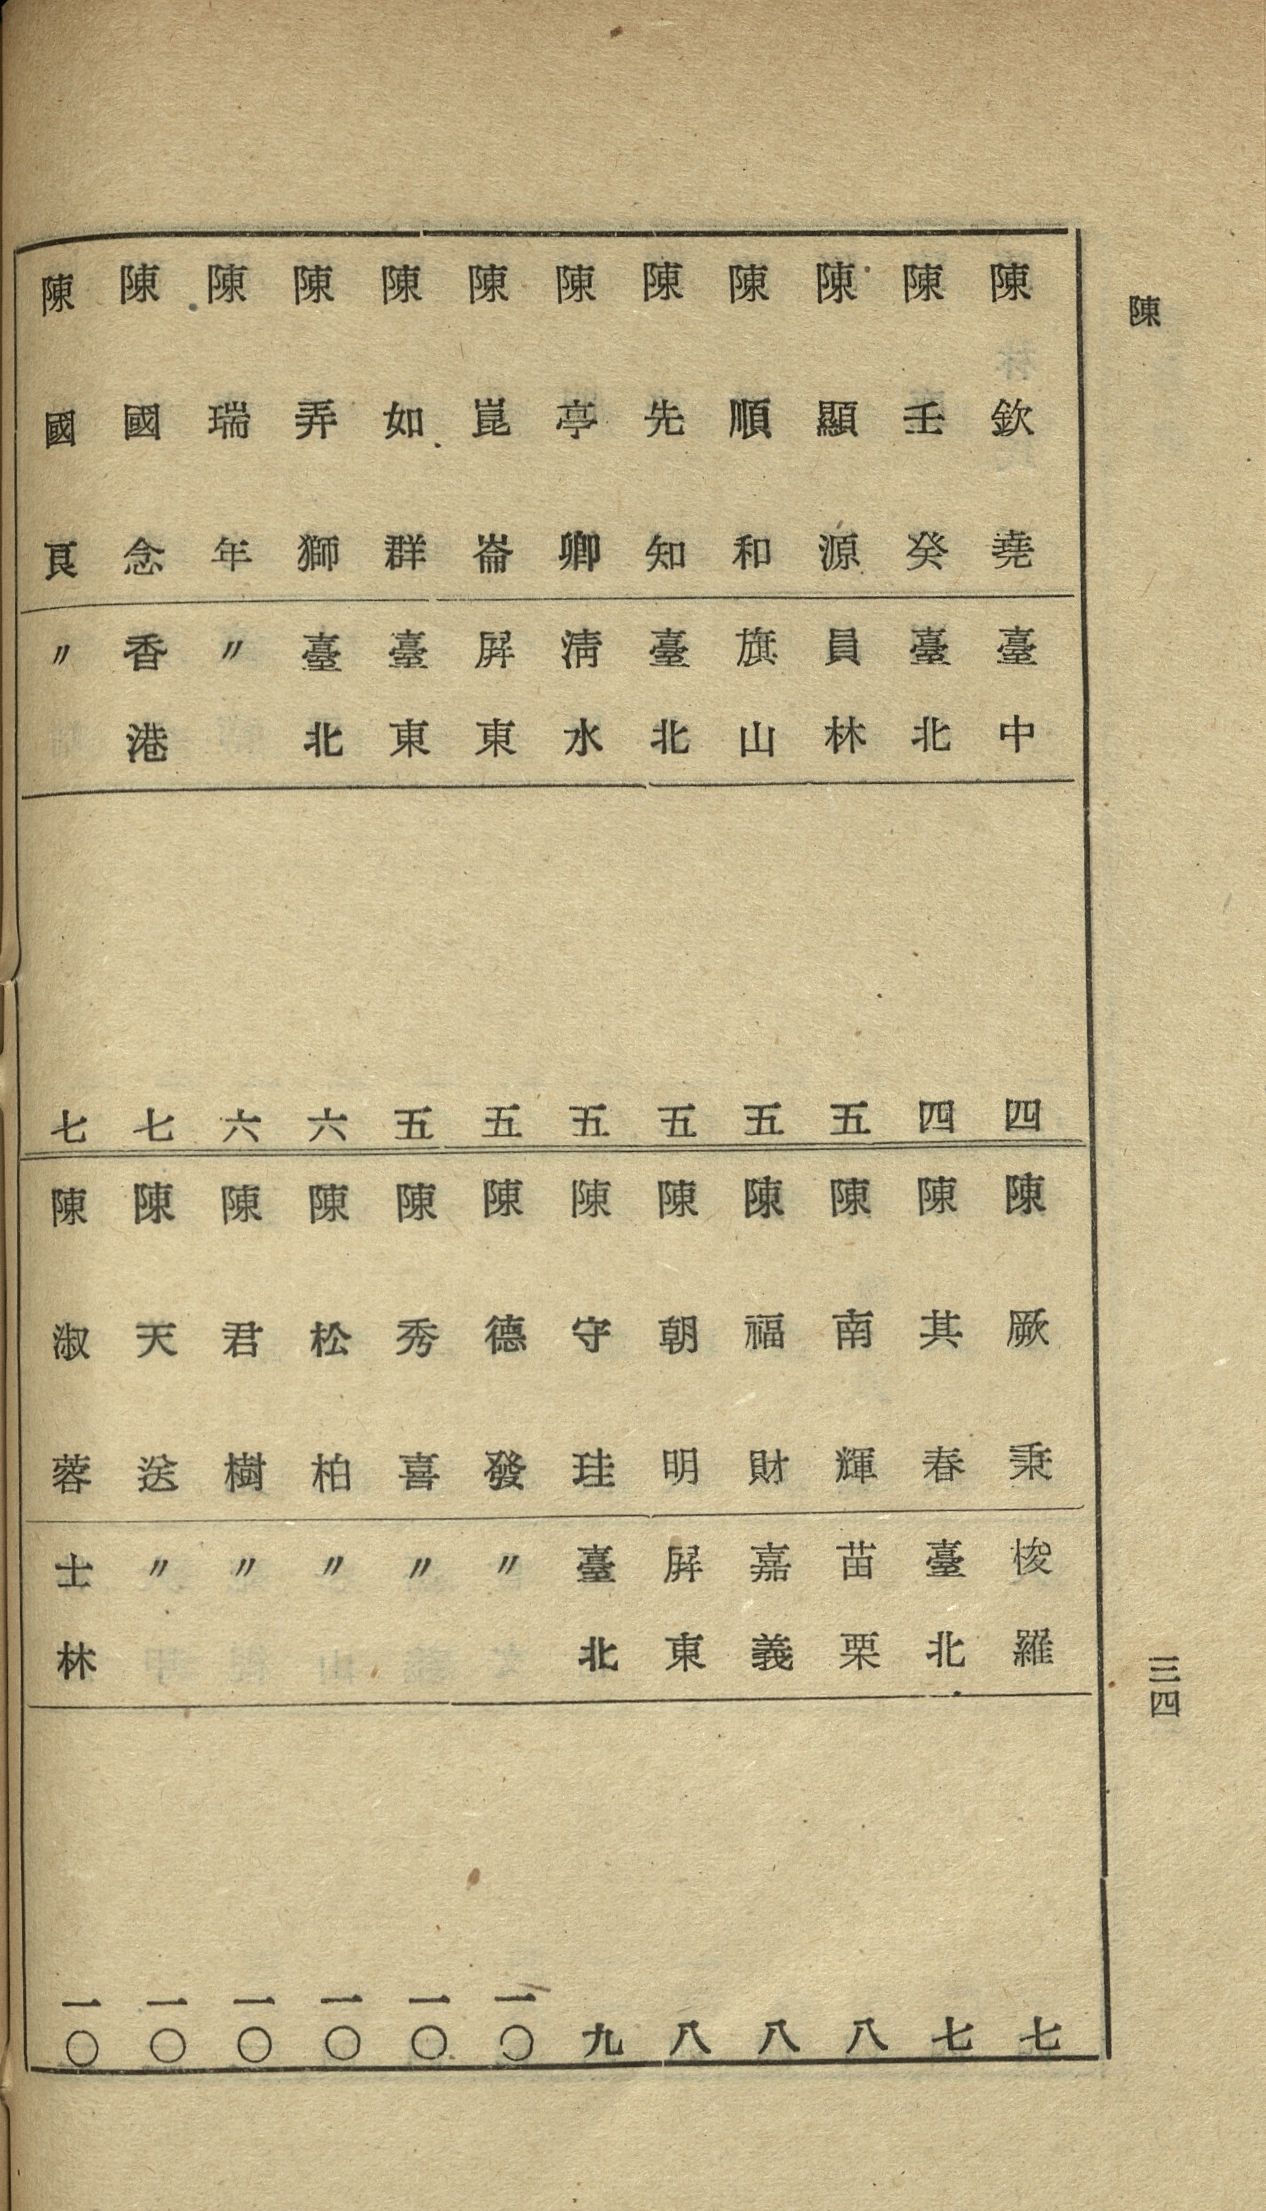 陳
三四
陳欽堯 臺中 四
陳壬癸 臺北 四
陳顯源 員林 五
陳順和 旗山 五
陳先知 臺北 五
陳亭卿 淸水 五
陳崑崙 屛東 五
陳如群 臺東 五
陳弄獅 臺北 六
陳瑞年 〃 六
陳國念 香港 七
陳國良 〃 七
陳厥秉 悛羅 七
陳其春 臺北 七
陳南輝 苗栗 八
陳福財 嘉義 八
陳朝明 屛東 八
陳守珪 臺北 九
陳德發 〃 一〇
陳秀喜 〃 一〇
陳松柏 〃 一〇
陳君樹 〃 一〇
陳天送 〃 一〇
陳淑蓉 士林 一〇